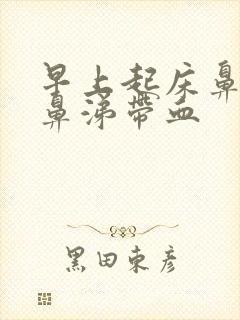 早上起床鼻
鼻涕带血
黑田东彦